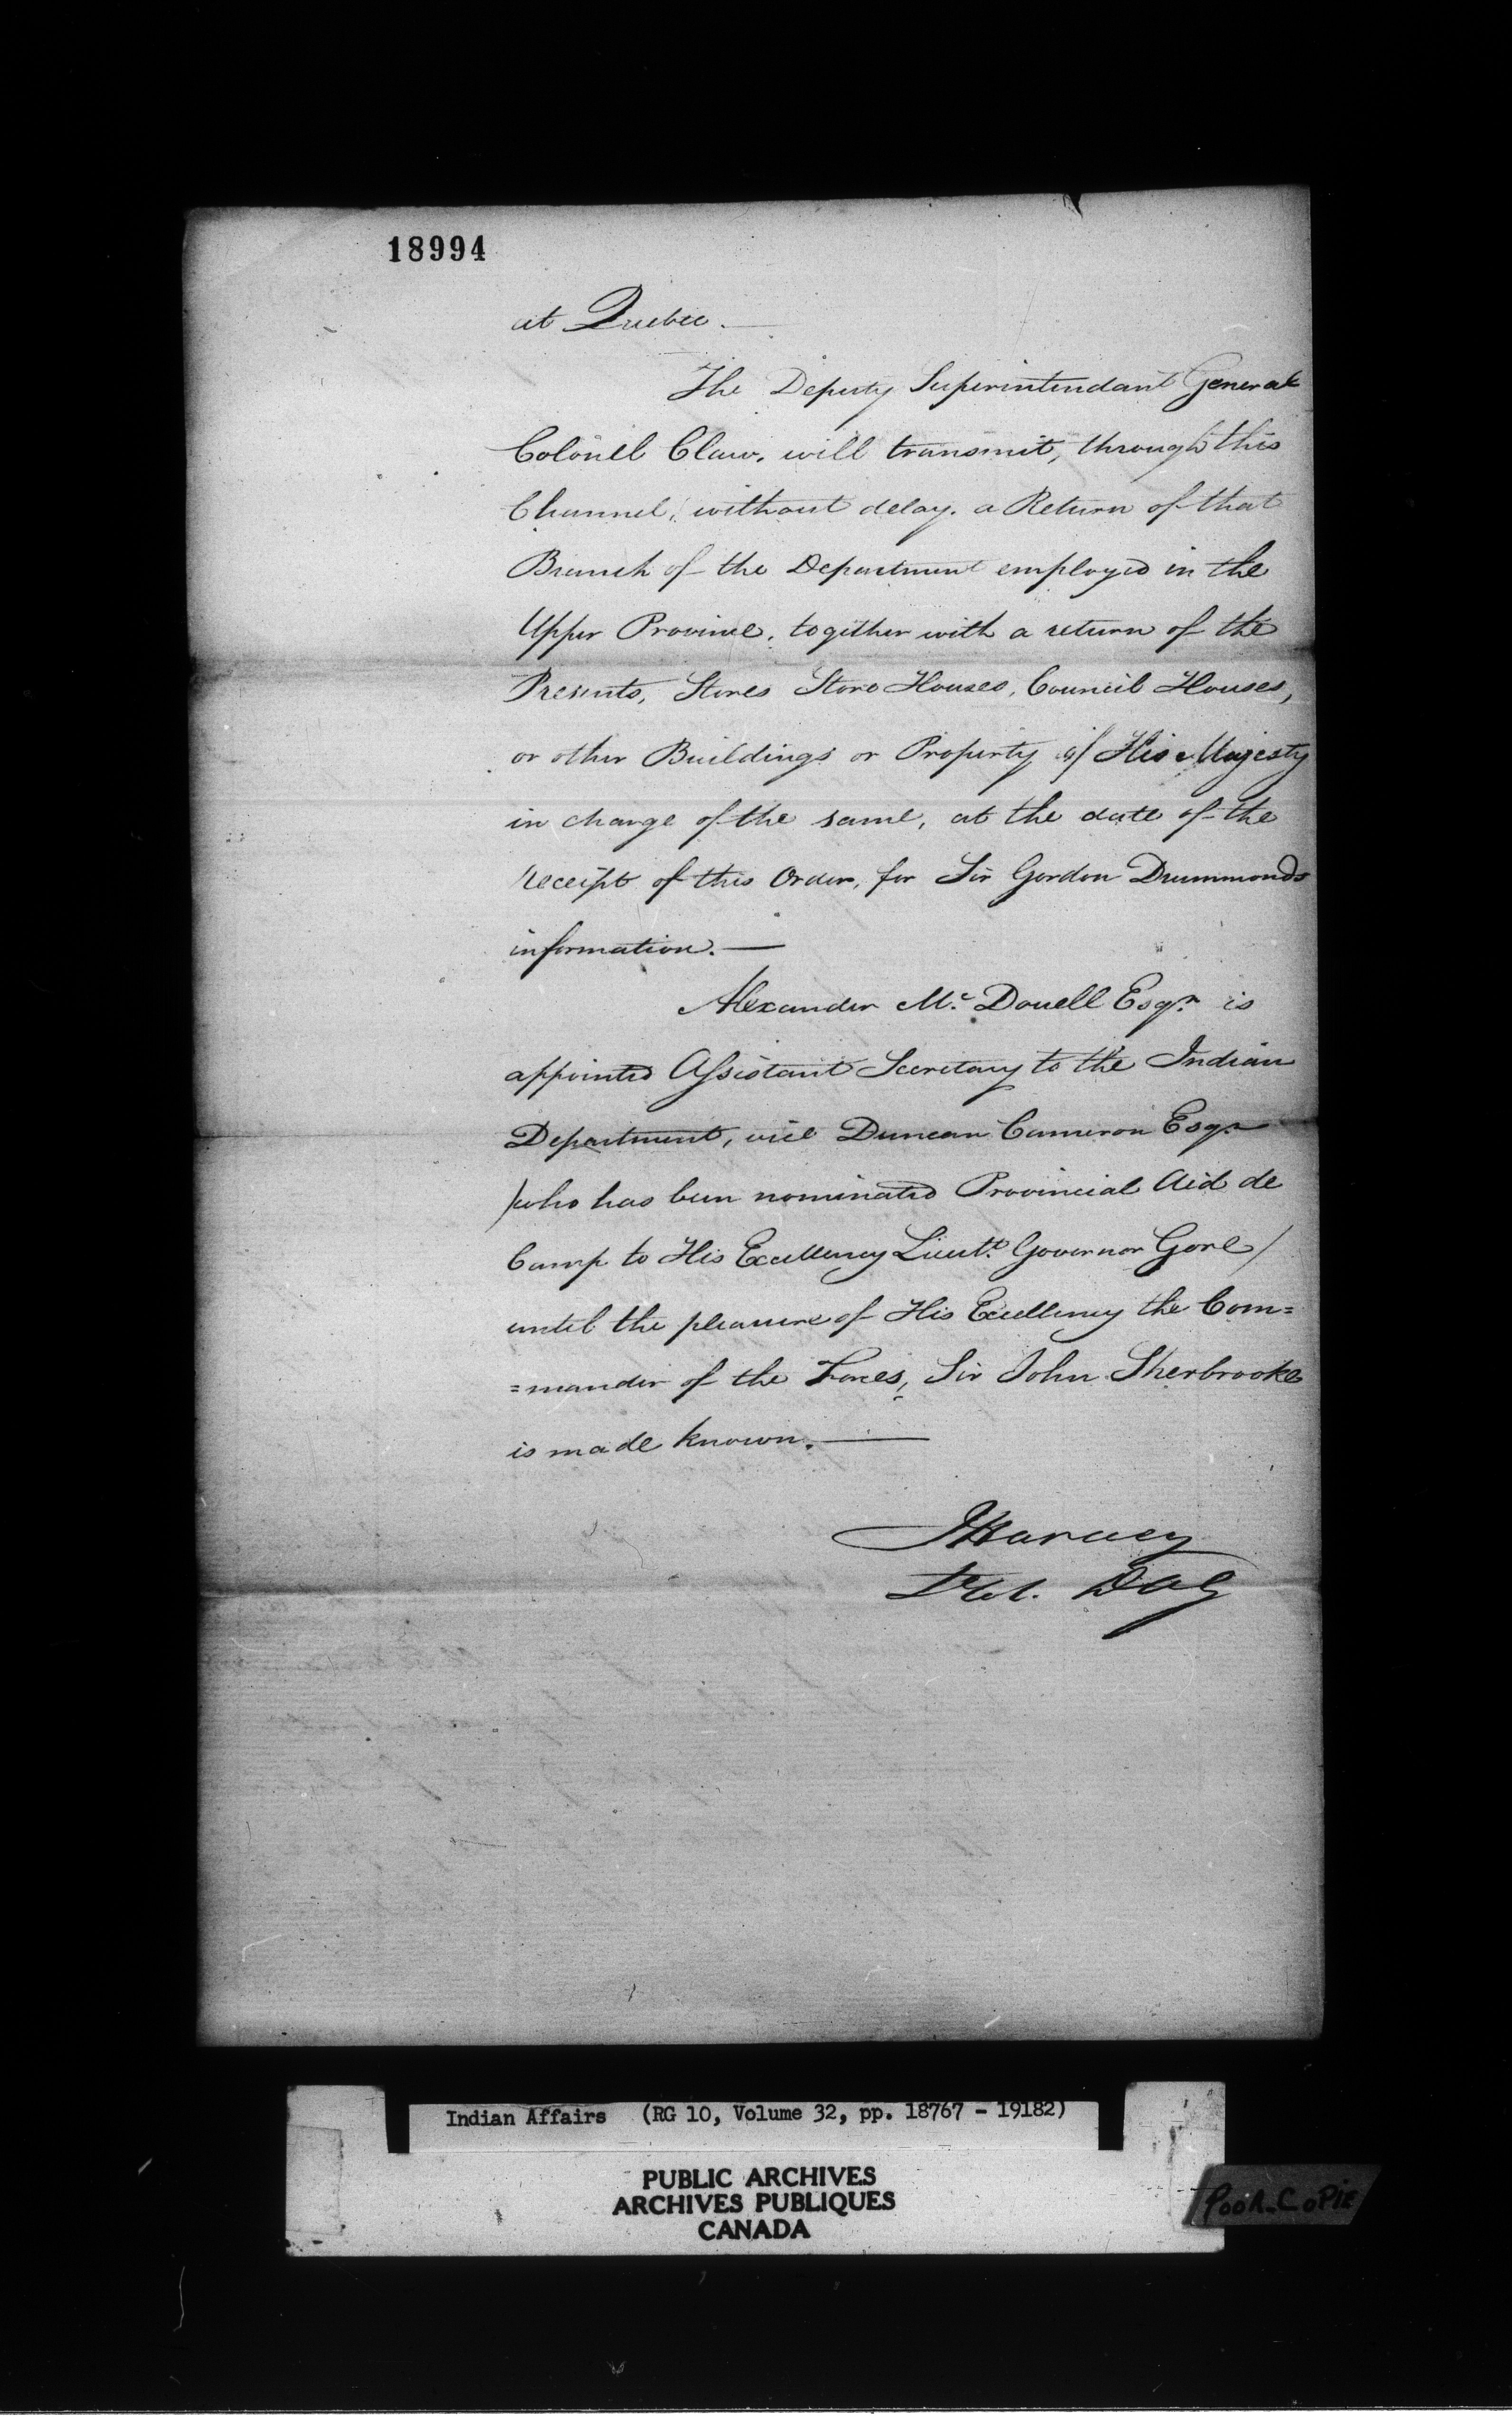 18994
at Quebec. —
The Deputy Superintendant General
Colonel Claus. will transmit, through this
Channel, without delay. a Return of that
Branch of the Department employed in the
Upper Province, together with a return of the
Presents, Stores Store Houses, Council Houses,
or other Buildings or Property of His Majesty
in charge of the same, at the date of the
receipt of this Order, for Sir Gordon Drummonds
information. —
Alexander Mc. Donell Esqr. is
appointed Assistant Secretary to the Indian
Department, vice Duncan Cameron Esqr.
/who has been nominated Provincial Aid de
Camp to His Excellency Lieut. Governor Gore/
until the pleasure of His Excellency the Com=
=mander of the Forces, Sir John Sherbrooke
is made known. —
J Harvey
Lt Col. DAG
Indian Affairs (RG 10, Volume 32, pp. 18767 - 19182)
PUBLIC ARCHIVES
ARCHIVES PUBLIQUES
CANADA
POOR_COPIE